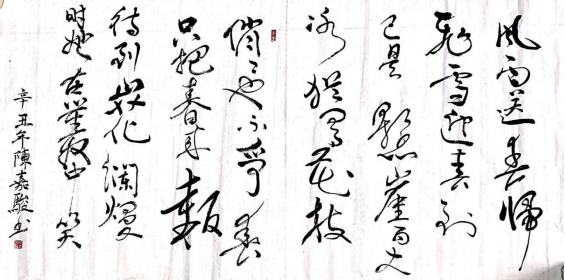 风雨送春归
飞雪迎春到
已是懸崖百丈
冰猶有花枝
俏〻也不爭春
只把春来報
待到山花爛熳
时她在叢中笑
辛丑年陳嘉駿书